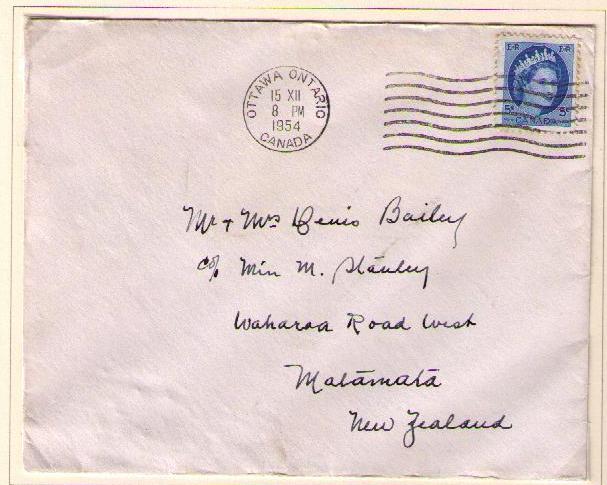 OTTAWA ONTARIO
15 XII
8 PM
1954
CANADA
E R E R
5¢ 5¢
CANADA
Mr + Mrs Denis Bailey
c/o Miss M. Stanley
Waharoa Road West
Matamata
New Zealand